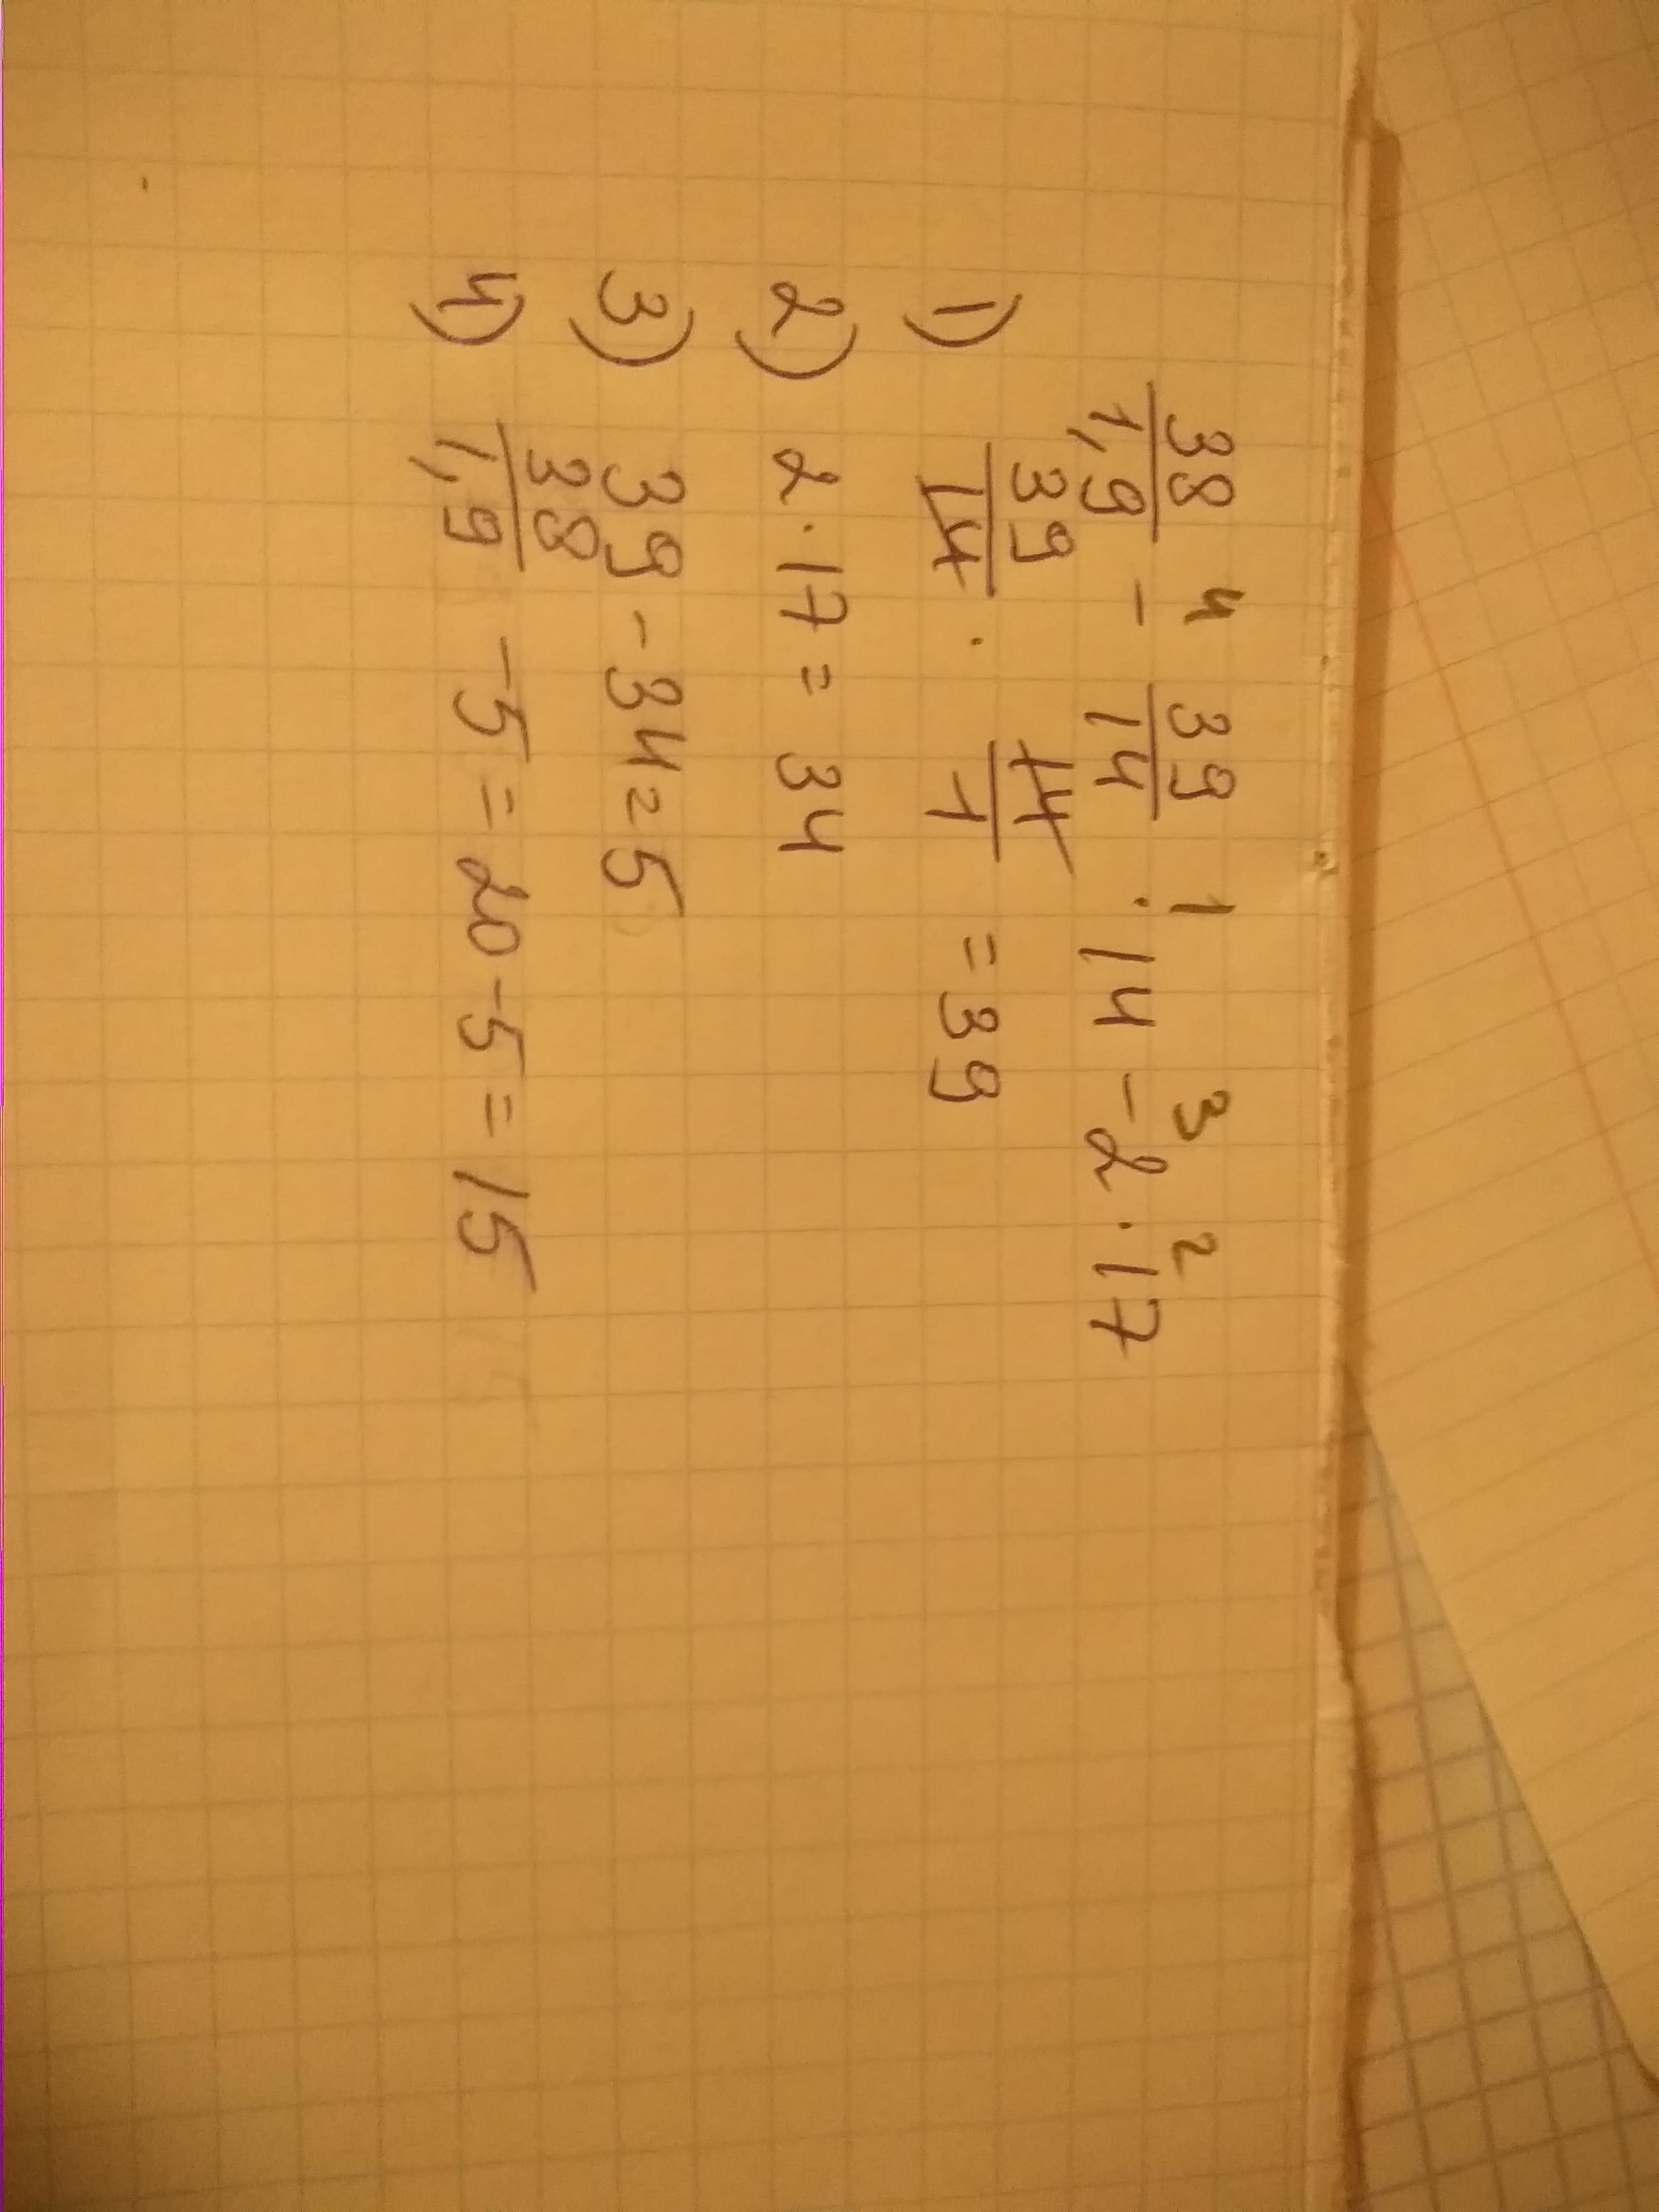 4 1 3 2
38/1,9 - 39/14 · 14 - 2 · 17
1) 39/14 · 14/1 = 39
2) 2 · 17 = 34
3) 39 - 34 = 5
4) 38/1,9 - 5 = 20 - 5 = 15